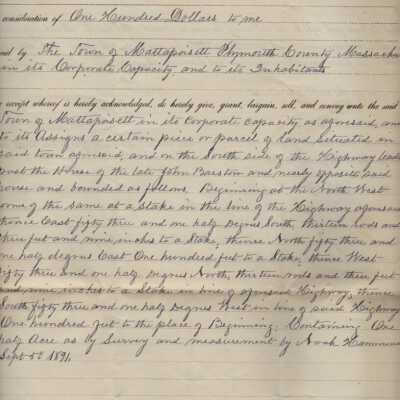 consideration of One Hundred Dollars to me
d by The Town of Mattapoisett Plymouth County Massachu
in its Corporate Capacity and to its Inhabitants
receipt whereof is hereby acknowledged, do hereby give, grant, bargain, sell, and convey unto the said
Town of Mattapoisett in its Corporate capacity as aforesaid, and
to its Assigns a certain piece or parcel of land situated in
said town aforesaid, and on the South side of the Highway lead
past the House of the late John Barstow and nearly opposite said
house and bounded as follows. Beginning at the North West
of the same at a stake in the line of the Highway aforesaid
thence East fifty three and one half Degrees South, thirteen rods and
three feet and nine inches to a Stake, thence North fifty three and
one half degrees East One hundred feet to a Stake, thence West
fifty three and one half Degrees North, thirteen rods and three feet
and nine inches to a Stake in line of aforesaid Highway, thence
South fifty three and one half Degrees West in line of said Highway
One hundred feet to the place of Beginning; Containing One
half Acre as by Survey and measurement by Noah Hammond
Sept 5th 1891.